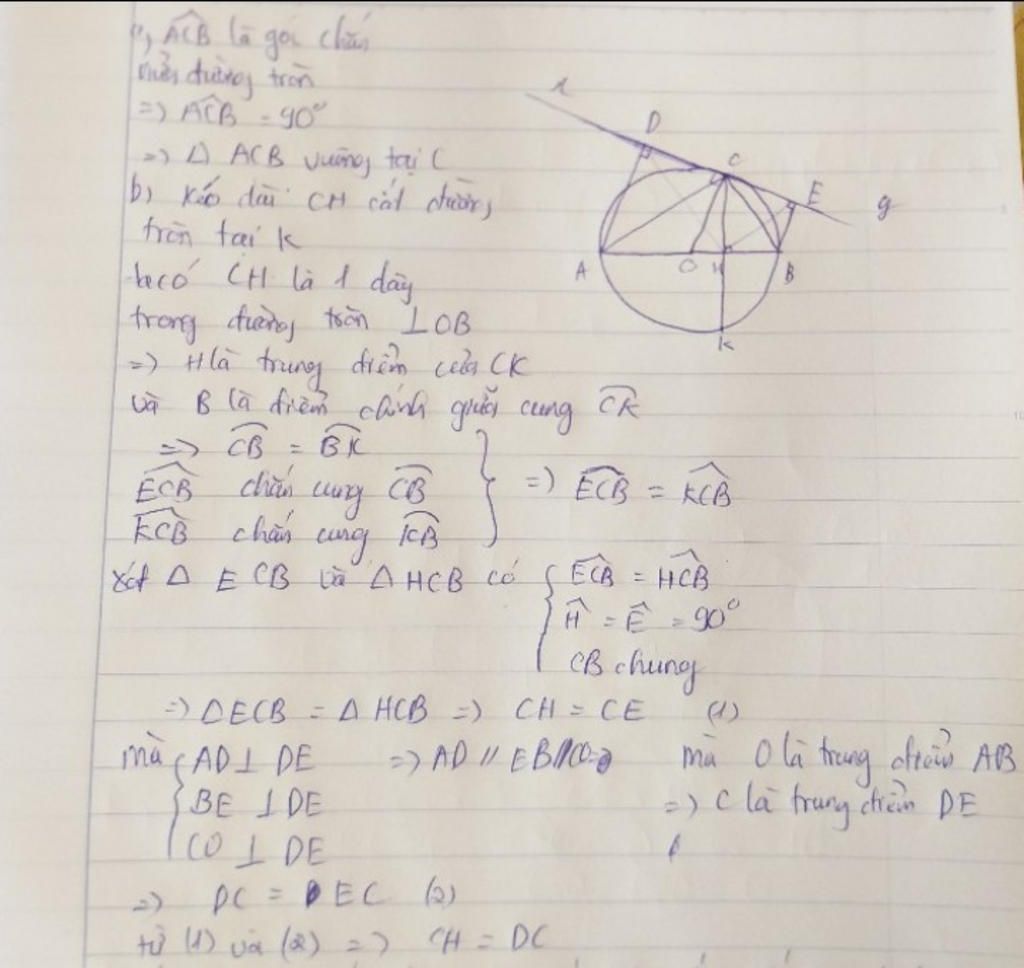 a, ACB là góc chắn
nửa đường tròn
=> ACB = 90°
=> Δ ACB vuông tại C
b) Kéo dài CH cắt đường
tròn tại K
ta có CH là 1 dây
trong đường tròn ⊥ OB
=> H là trung điểm của CK
và B là điểm chính giữa cung CK
=> CB = BK
ECB chắn cung CB
KCB chắn cung KB
=> ECB = KCB
xét Δ ECB và Δ HCB có { ECB = HCB
H = E = 90°
CB chung
=> ΔECB = Δ HCB => CH = CE (1)
mà { AD ⊥ DE => AD // EB // CO mà O là trung điểm AB
BE ⊥ DE => C là trung điểm DE
CO ⊥ DE
=> DC = EC (2)
từ (1) và (2) => CH = DC
x
D
C
E
y
A
O
H
B
K